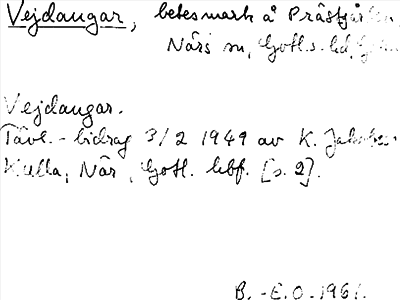 Vejdaugar, betesmark å Prästgården,
När sn, Gotl.s. hd,
Vejdaugar.
Tävl.-bidrag 3/2 1949 av K. Jakobsson
Kulla, När, Gotl. kbf. [s. 2].
B.-E.O. 1961.